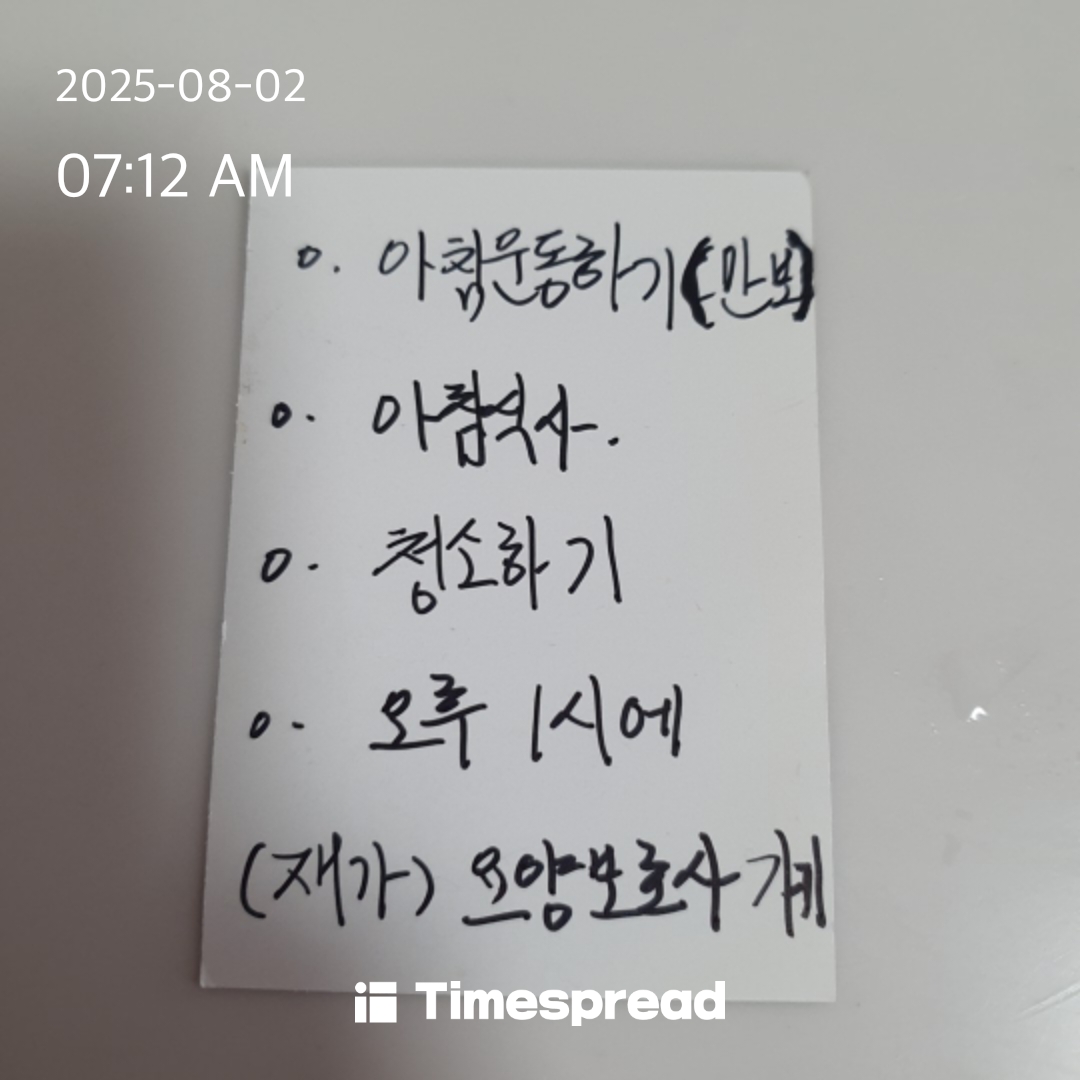 2025-08-02
07:12 AM
o. 아침운동하기(만보)
o. 아침식사.
o. 청소하기
o. 오후 1시에
(재가) 요양보호사
Timespread